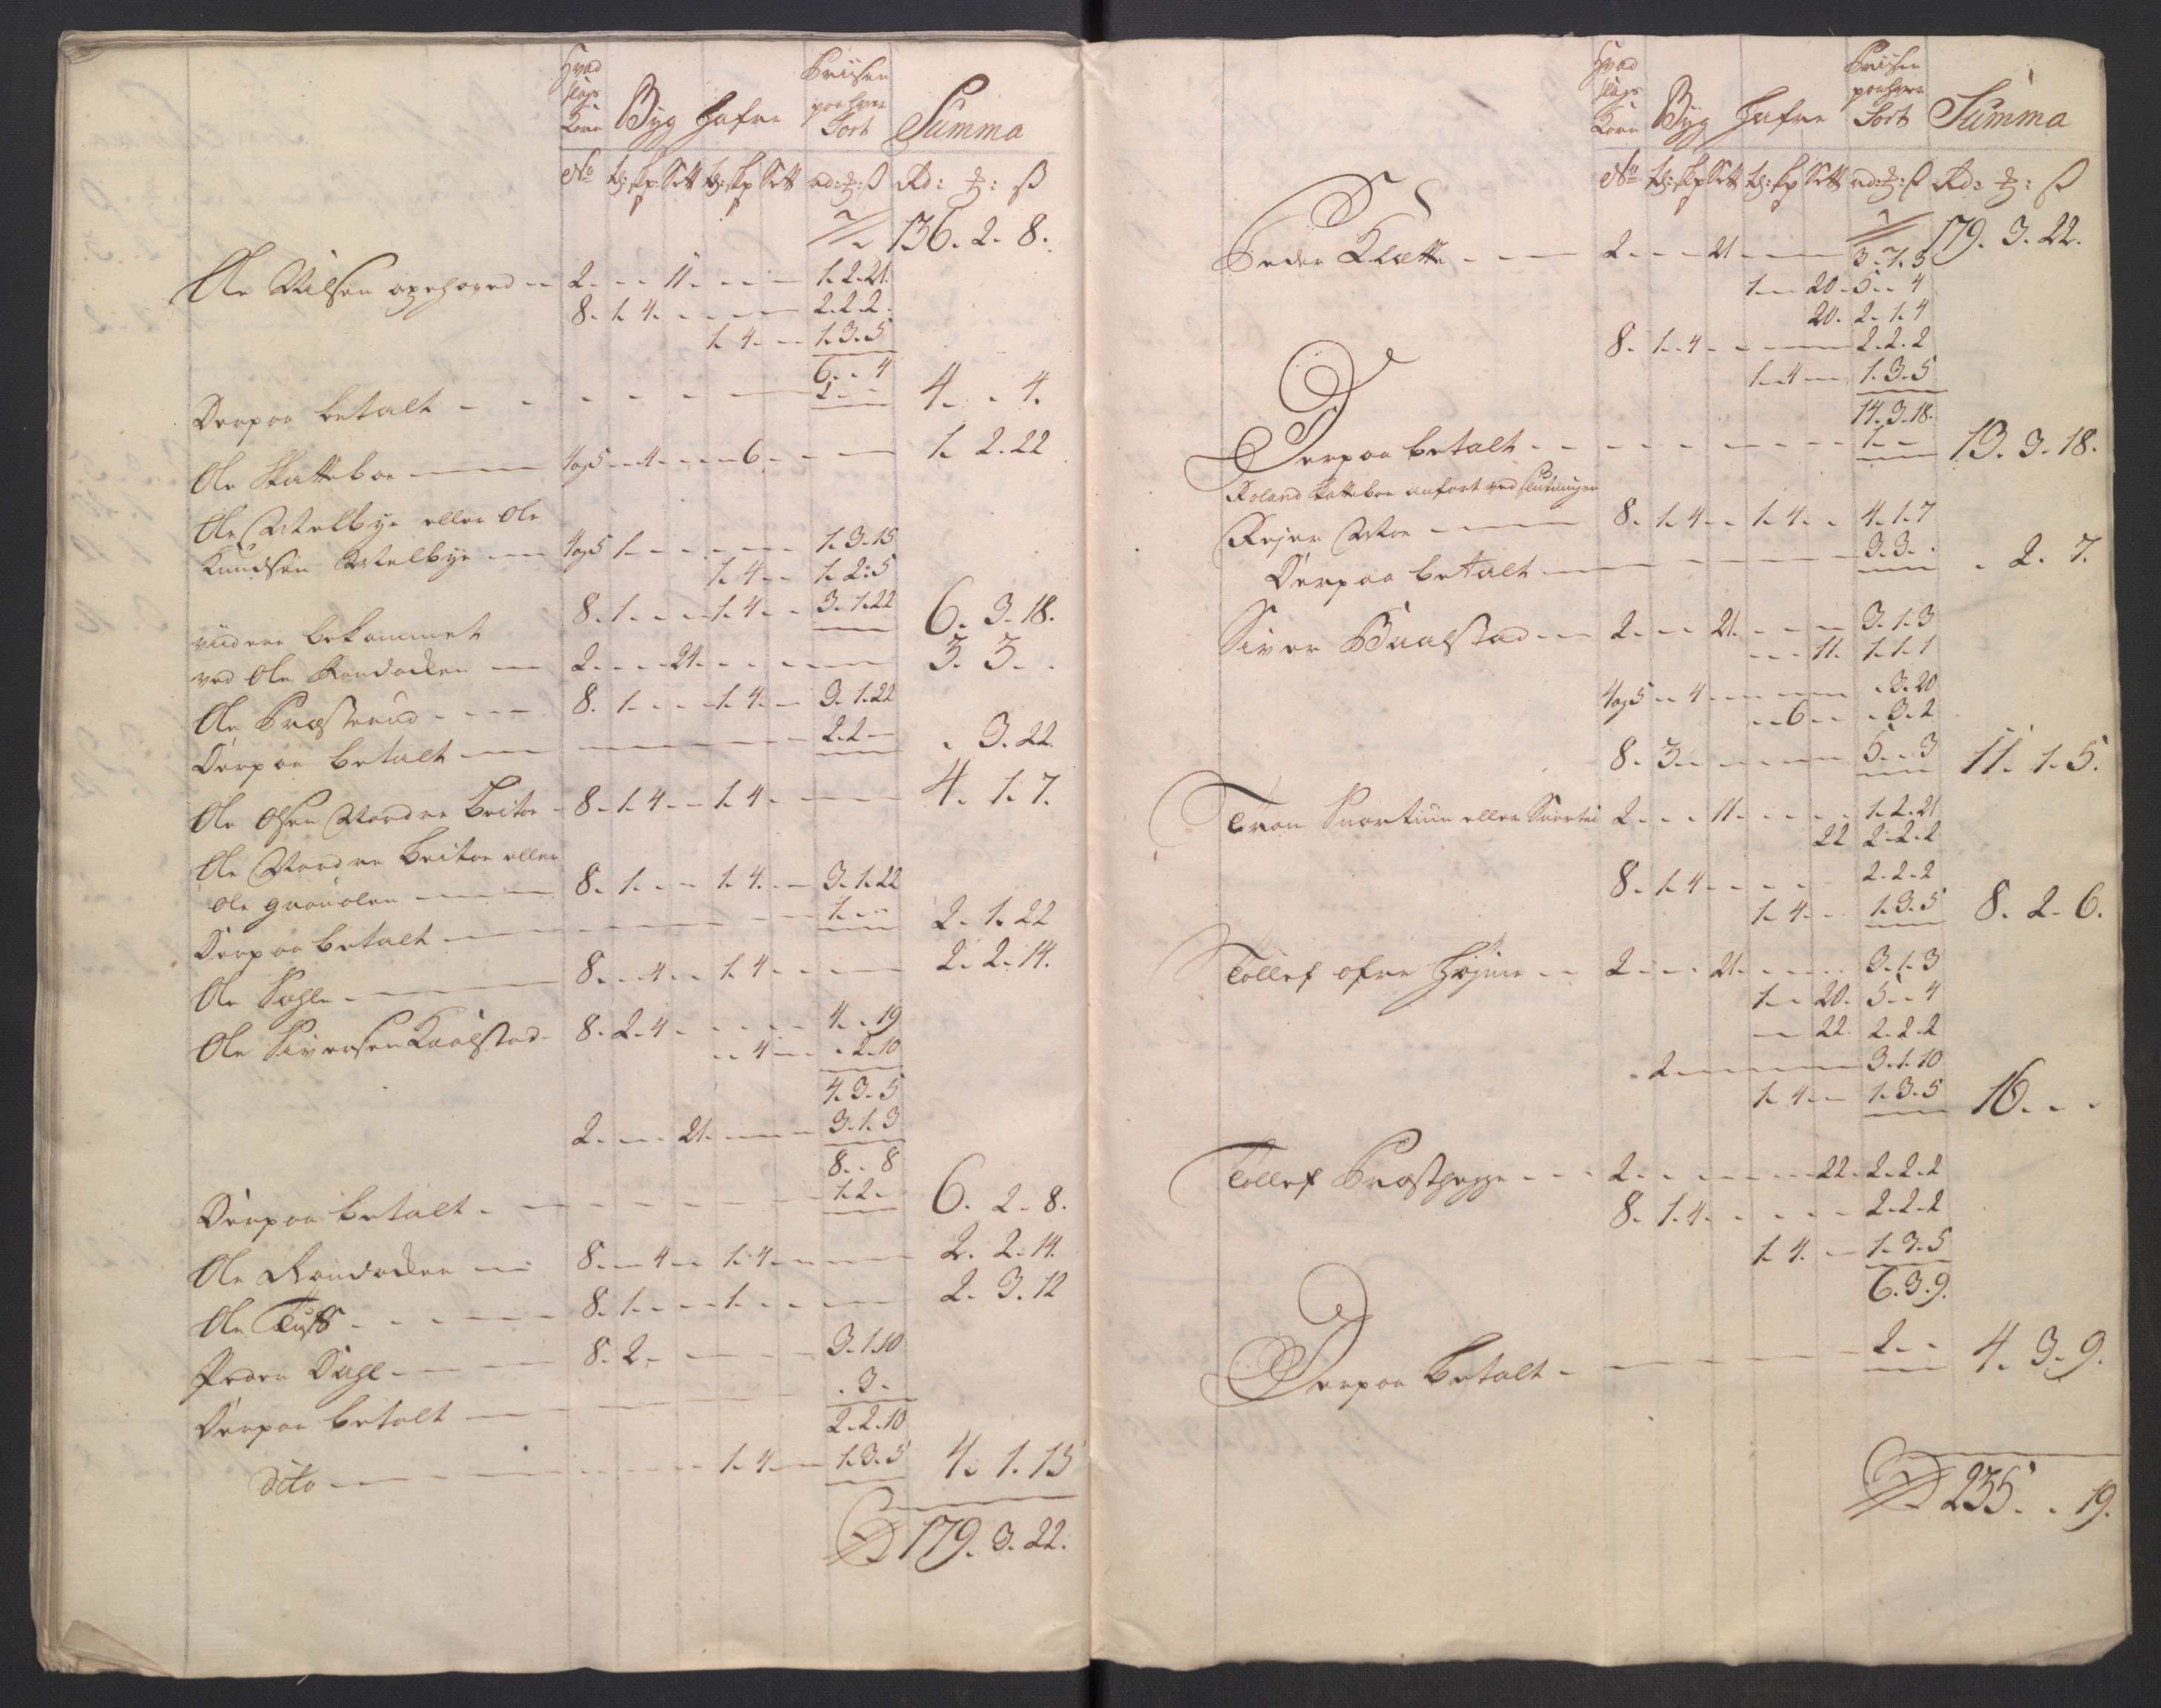 Hvad slags Korn | Byg | Hafre | Priisen paa hver Sort | Summa
No | td: skp: Sett | td: skp Sett | rd: ℥: ß | Rd: ℥: ß
136. 2. 8.
Ole Nilsen 2. - - 11. - - - 1. 2. 21.
8. 1. 4. - - - - 2. 2. 2.
1. 4. - - 1. 3. 5
6. - 4
Derpaa betalt - - - - - - 2. - - 4. - 4.
Ole Skatteboe 4 og 5 - 4. - - - 6. - - - 1. 2. 22
Ole Melbye eller Ole
Knudsen Melbye 4 og 5 1. - - - - - - 1. 3. 15
1. 4. - - 1. 2. 5
8. 1. - - - 1. 4. - - 3. 1. 22 6. 3. 18.
viidere bekommet
ved Ole 2. - - - 21. - - - - - 3. 3. -
Ole Præsterud - - - - 8. 1. - - - 1. 4. - - 3. 1. 22
Derpaa betalt - - - 2. 2. - - 3. 22.
Ole Olsen Nordre 8. 1. 4. - - 1. 4. - - - 4. 1. 7.
Ole Nordre eller
Ole 8. 1. - - - 1. 4. - - 3. 1. 22
Derpaa betalt - - - 1. - - 2. 1. 22
Ole 8. - - 4. - - 1. 4. - - - 2. 2. 14.
Ole Siversen Kaalstad 8. 2. 4. - - - - - 4. - 19
- - 4. - - - 2. 10
4. 3. 5
2. - - - 21. - - - 3. 1. 3
8. - 8
Derpaa betalt - - - 1. 2. - 6. 2. 8.
Ole 8. - - 4. - - 1. 4. - - - 2. 2. 14.
Ole 8. 1. - - - 1. - - - 2. 3. 12
Peder Dahl 8. 2. - - - - - 3. 1. 10
Derpaa betalt - - - . 3. -
2. 2. 10
Dito - - - 1. 4. - - 1. 3. 5 4. 1. 15
179. 3. 22.
Hvad slags Korn | Byg | Hafre | Priisen paa hver Sort | Summa
No | td: skp Sett | td: skp Sett | rd: ℥: ß | Rd: ℥: ß
179. 3. 22.
Peder Klætte - - - 2. - - - 21. - - - 3. 1. 3
1. - - 20. 5. - 4
20. 2. 1. 4
8. 1. 4. - - - - 2. 2. 2
1. 4. - - 1. 3. 5
14. 3. 18.
Derpaa betalt - - - 1. - - 13. 3. 18.
Roland Skatteboe anført ved slutningen
Rejer Moe 8. 1. 4. - - 1. 4. - - 4. 1. 7
Derpaa betalt - - - 3. 3. - - 2. 7.
Siver 2. - - - 21. - - - 3. 1. 3
- - - 11. 1. 1. 1
4 og 5 - - 4. - - - - . 3. 20
- - 6. - - . 3. 2
8. 3. - - - - - 5. - 3 11. 1. 5.
Tron eller 2. - - - 11. - - - 1. 2. 21
22 2. 2. 2
8. 1. 4. - - - - 2. 2. 2
1. 4. - - 1. 3. 5 8. 2. 6.
Tollef øfre 2. - - - 21. - - - 3. 1. 3
1. - - 20. 5. - 4
- - 22. 2. 2. 2
- 2. - - - - - 3. 1. 10
1. 4. - - 1. 3. 5 16. - -
Tollef 2. - - - - - 22. 2. 2. 2
8. 1. 4. - - - - 2. 2. 2
1. 4. - - 1. 3. 5
6. 3. 9.
Derpaa betalt - - - 2. - - 4. 3. 9.
235. - 19.